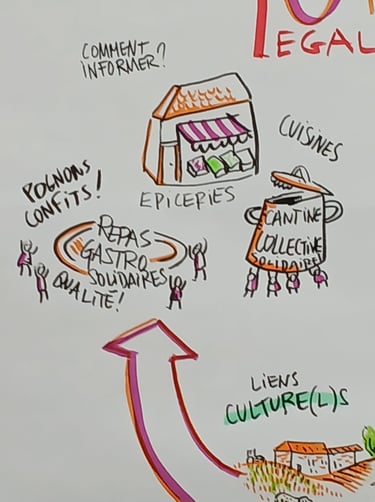 EGAL
COMMENT
INFORMER?
CUISINES
POGNONS
CONFITS!
EPICERIES
CANTINE
COLLECTIVE
SOLIDAIRE
REPAS
GASTRO
SOLIDAIRES
QUALITÉ!
LIENS
CULTURE(L)S